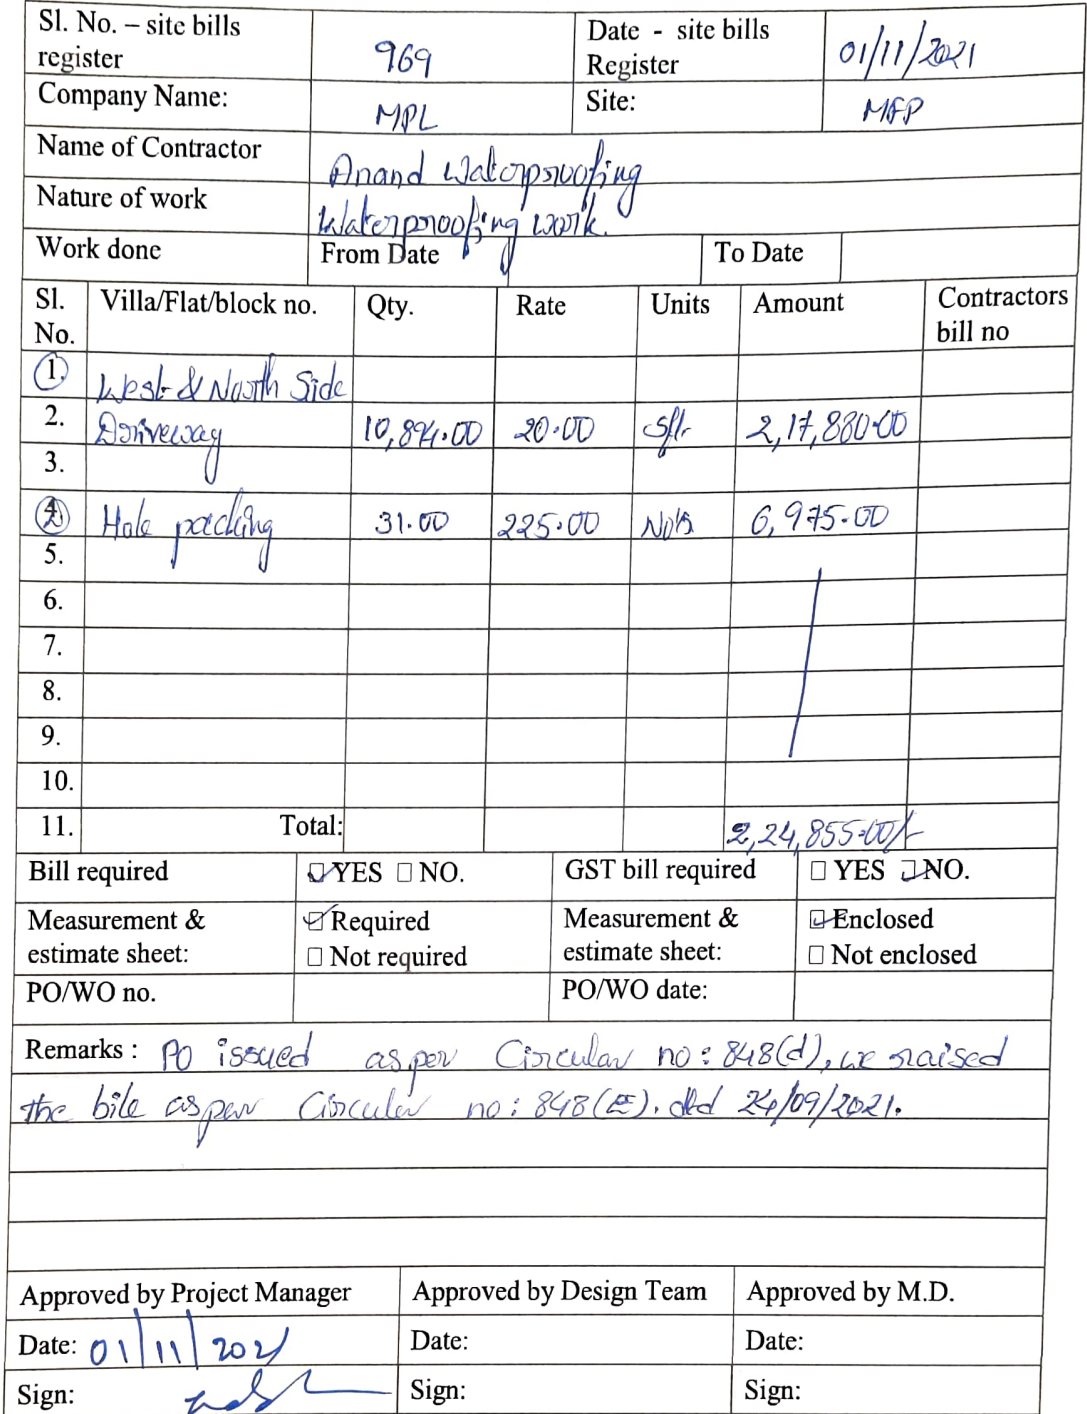 Sl. No. – site bills register 969 Date - site bills Register 01/11/2021
Company Name: MPL Site: MFP
Name of Contractor Anand Waterproofing
Nature of work Waterproofing work.
Work done From Date To Date
Sl. No. Villa/Flat/block no. Qty. Rate Units Amount Contractors bill no
1. West & North Side
2. Driveway 10,894.00 20.00 Sft. 2,17,880.00
3.
4. 2 Hole packing 31.00 225.00 No's 6,975.00
5.
6.
7.
8.
9.
10.
11. Total: 2,24,855.00/-
Bill required YES NO. GST bill required YES NO.
Measurement & estimate sheet: Required Not required Measurement & estimate sheet: Enclosed Not enclosed
PO/WO no. PO/WO date:
Remarks : PO issued as per Circular no: 848(d), we raised
the bile as per Circular no: 848(E). dtd 24/09/2021.
Approved by Project Manager Approved by Design Team Approved by M.D.
Date: 01/11/2021 Date: Date:
Sign: Sign: Sign: